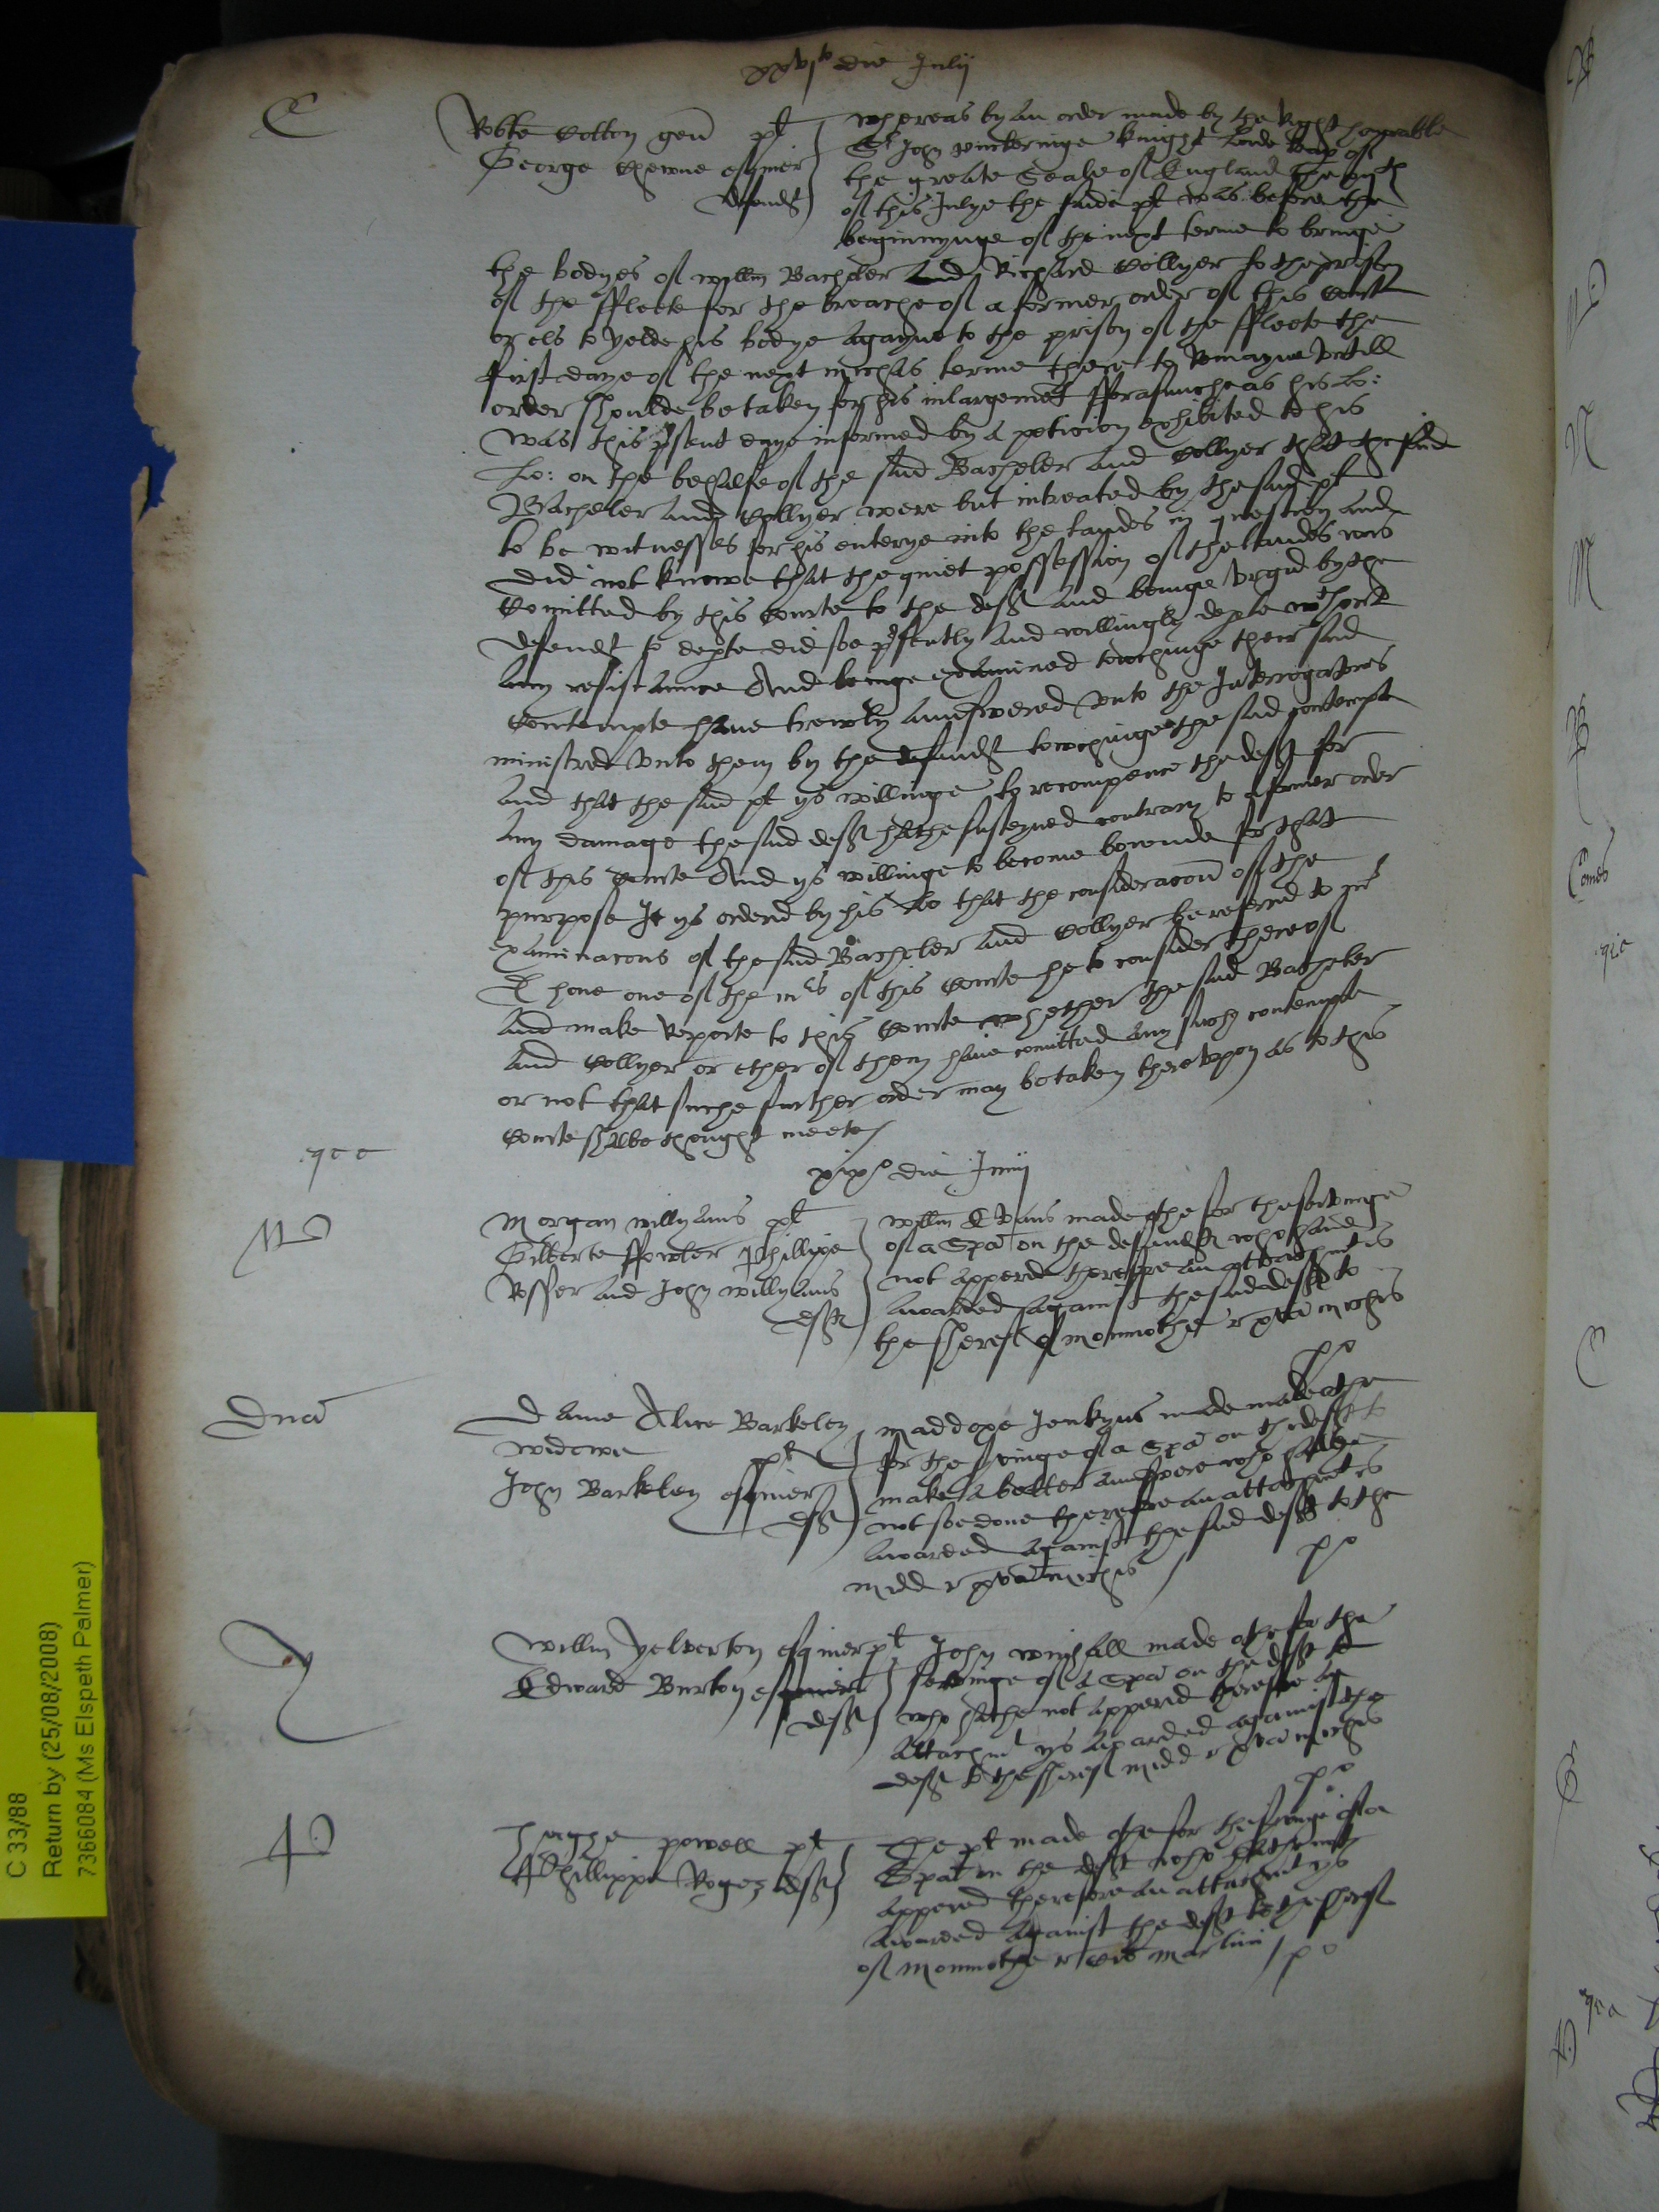 xxvj to die Julij
C
Robte Cotton gen pt
George Chewne esquier
defendt
whereas by an order made by the Right honorable
Sr John Puckeringe knight Lorde keap of
the greate Seale of England the
of this Julye the saide pt was before the
beginnynge of the next terme to bringe
the bodyes of willm Bacheler and Richard Collyer to the prison
of the ffleete for the breache of a former order of this Court
or els to yelde his bodye agayne to the prison of the ffleete the
first daye of the next michas terme there to Remayne untill
order shoulde be taken for his inlargemt fforasmuche as his Lo:
was this psent daye informed by a peticion exhibited to his
Lo: on the behalfe of the said Bacheler and Collyer that the said
Bacheler and Collyer were but intreated by the said pt
to be witnesses for his enterye into the landes in question and
did not knowe that the quiet possession of the landes was
Comitted by this Courte to the deft and beinge urged by the
defendt to depte did soe psently and willingly depte wthout
any resistaunce And beinge examined towchinge their said
Contempte have trewly aunswered unto the Interrogatores
ministred unto them by the defendt towchinge the said contempt
and that the said pt ys willinge to recompence the deft for
any damage the said deft hathe susteyned contrary to a former order
of this Courte And ys willinge to become bounde for that
purpose It ys ordered by his Lo that the consideracon of the
examinacons of the said Bacheler and Collyer be referred to mr
 one of the mrs of this Courte he to consider thereof
and make Reporte to this Courte whether the said Bacheler
and Collyer or ether of them have comitted any such contempte
or not that suche further order may be taken thereupon as to this
Courte shalbe thought meete
xix o die Junij
M
Morgan willyams pt
Gilberte ffowler Phillipe
Rosser and John willyams
defts
willm Evans made othe for the servinge
of a Spa on the defendts who have
not appered therefore an attachmt is
awarded against the said defts to
the sheref of monmothe r xva michis
po
Dna
Dame Alice Barkeley
widowe pt
John Barkeley esquier
deft
maddoxe Jenkyns made othe
for the servinge of a Spa on the deft to
make a better aunswere who hathe
not soe done therefore an attachmt is
awarded against the said deft to the
midd r xva michis
po
Y
Willm Yelverton esquier pt
Edward Burton esquier
deft
John made othe for the
servinge of a Spa on the deft
who hathe not appered therefore an
attachmt ys awarded against the
deft to the sheref midd r xva michis
po
P
 powell pt
Phillippe Roger deft
The pt made othe for the servinge of a
Spa on the deft who hathe not
appered therefore an attachmt ys
awarded against the deft to the sheref
of monmothe r Martini po
C 33/88
Return by (25/08/2008)
7366084 (Ms Elspeth Palmer)